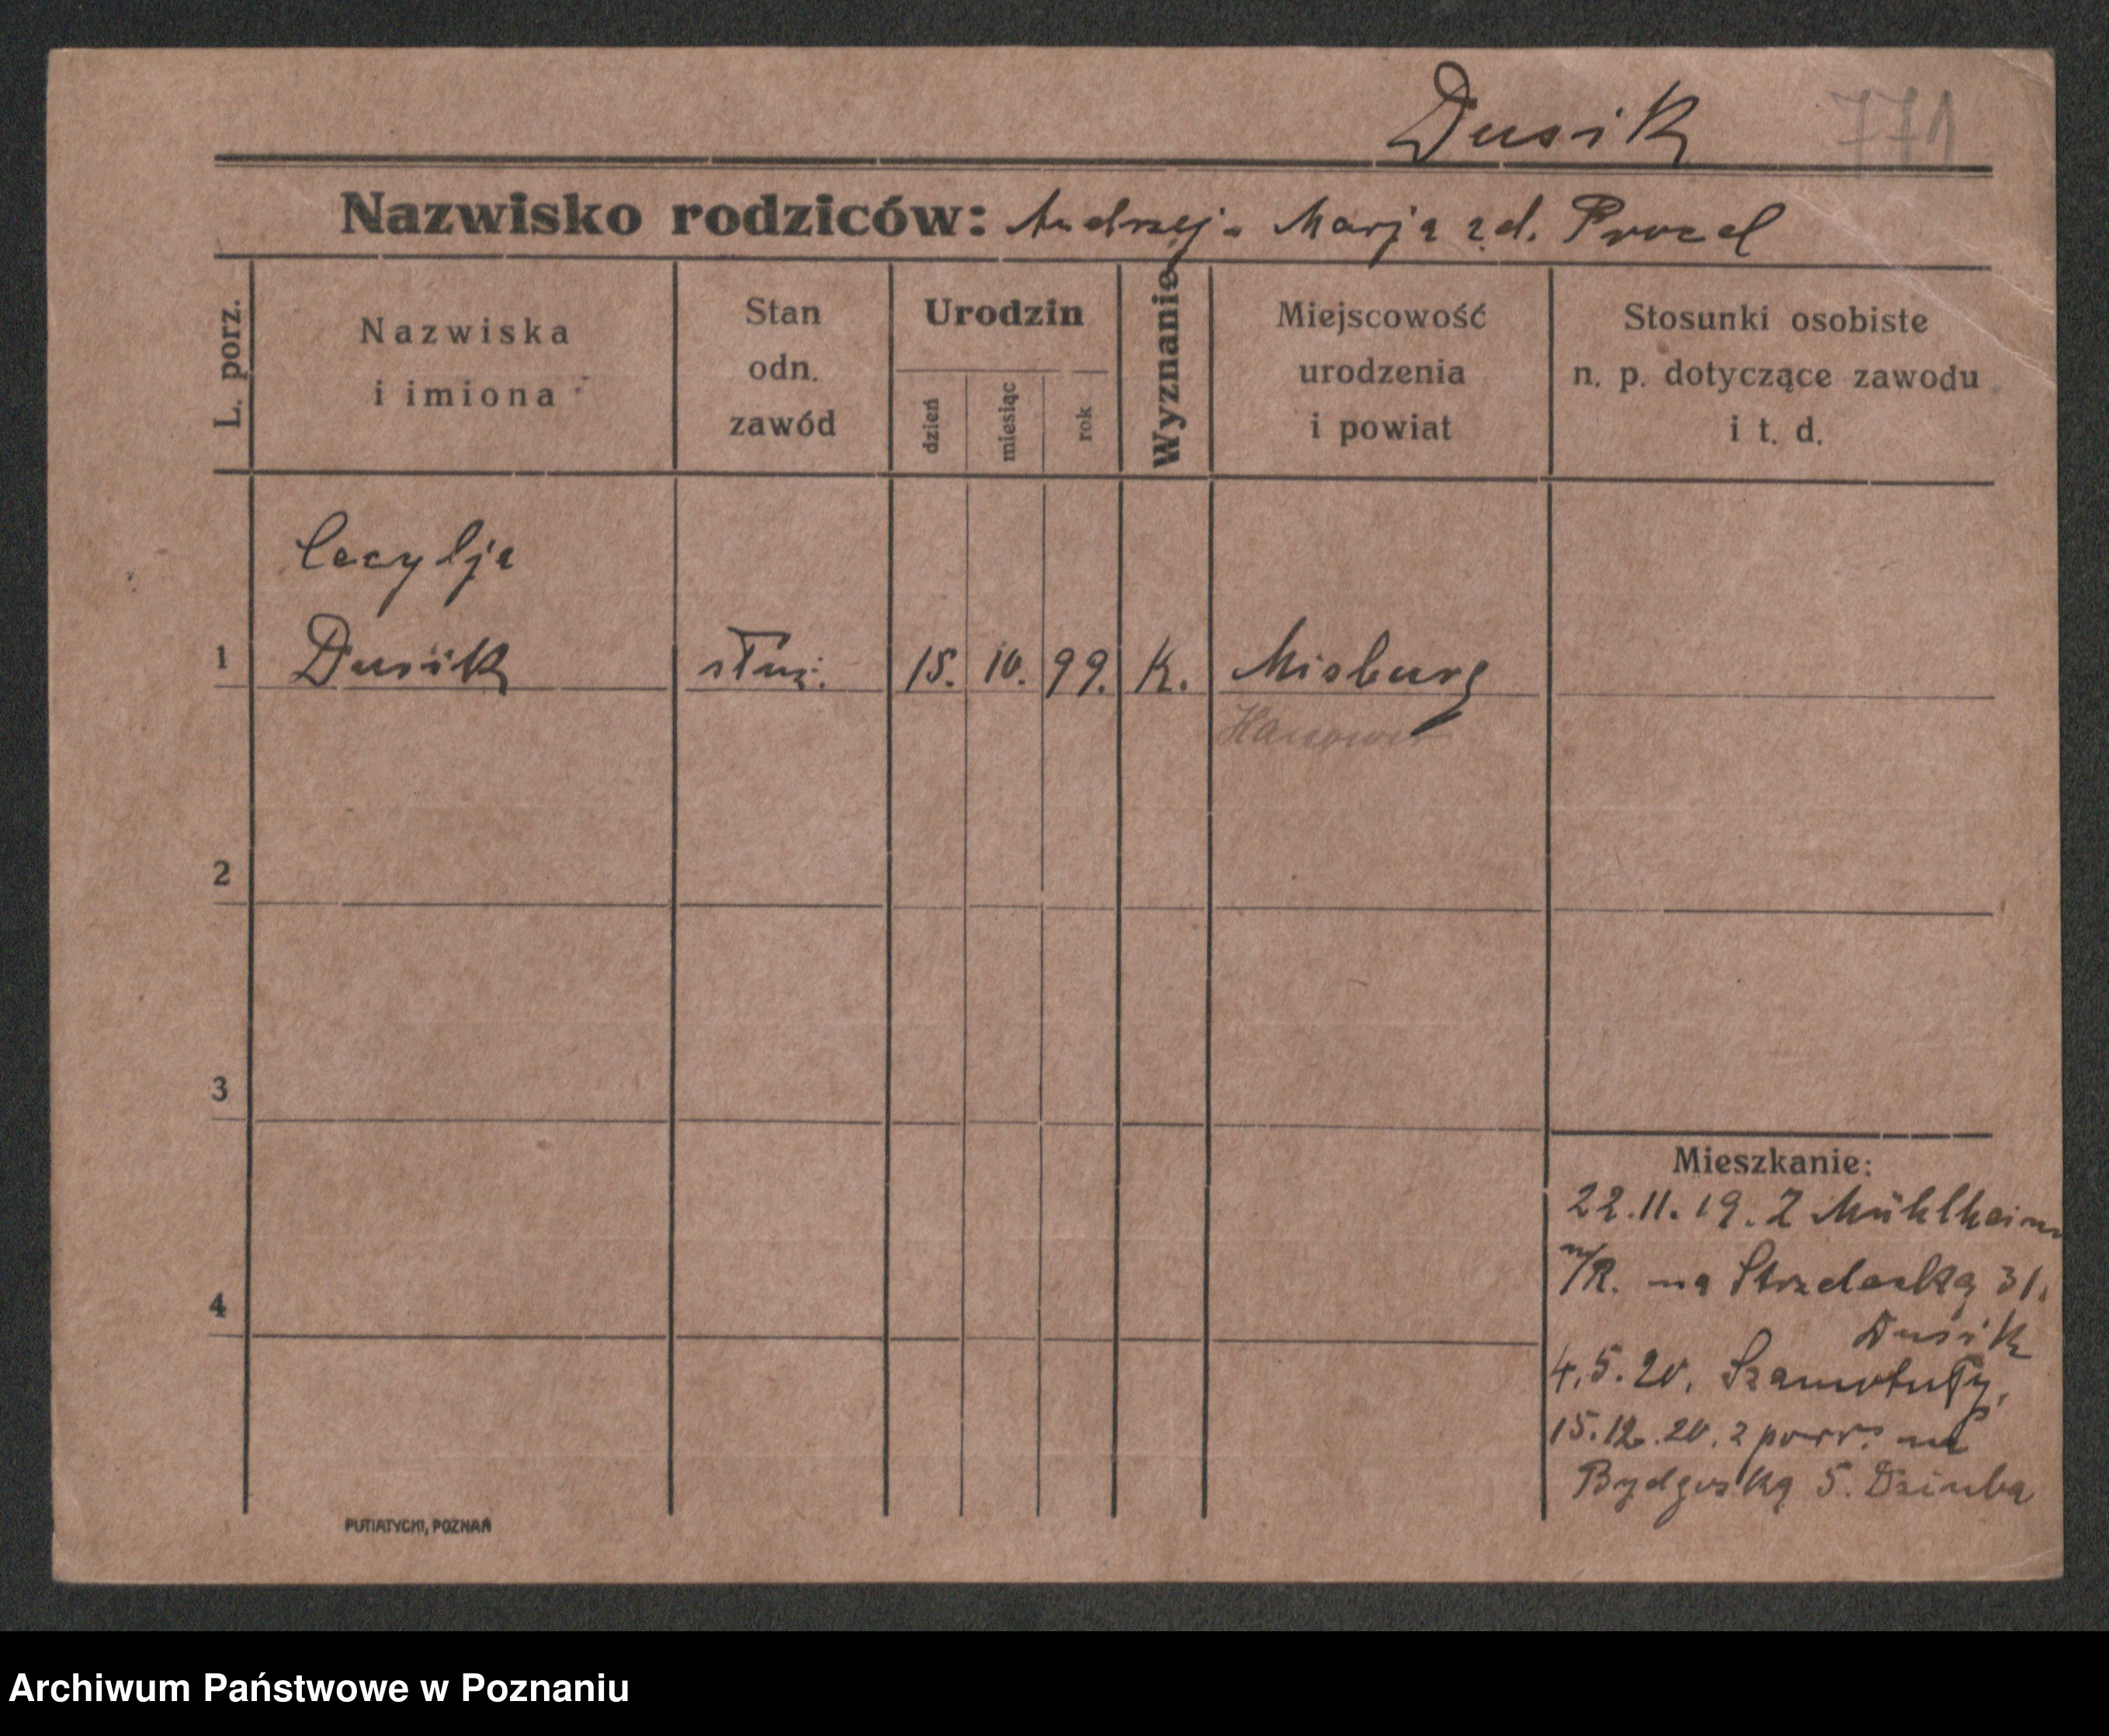 Dusik 771
Nazwisko rodziców: Andrzej - Marja z d. Prozel
L. porz.
Nazwiska
i imiona
Stan
odn.
zawód
Urodzin
dzień
miesiąc
rok
Wyznanie
Miejscowość
urodzenia
i powiat
Stosunki osobiste
n. p. dotyczące zawodu
i t. d.
Cecylja
1 Dusik służ. 15. 10. 99. K. Misburg
Hanower
2
3
4
Mieszkanie:
22.11.19. Z Mühlheim
n/R. na Strzelecką 31.
Dusik
4.5.20. Szamotuły,
15.12.20. z powr. na
Bydgoską 5. Dziuba
PUTIATYCKI, POZNAŃ
Archiwum Państwowe w Poznaniu